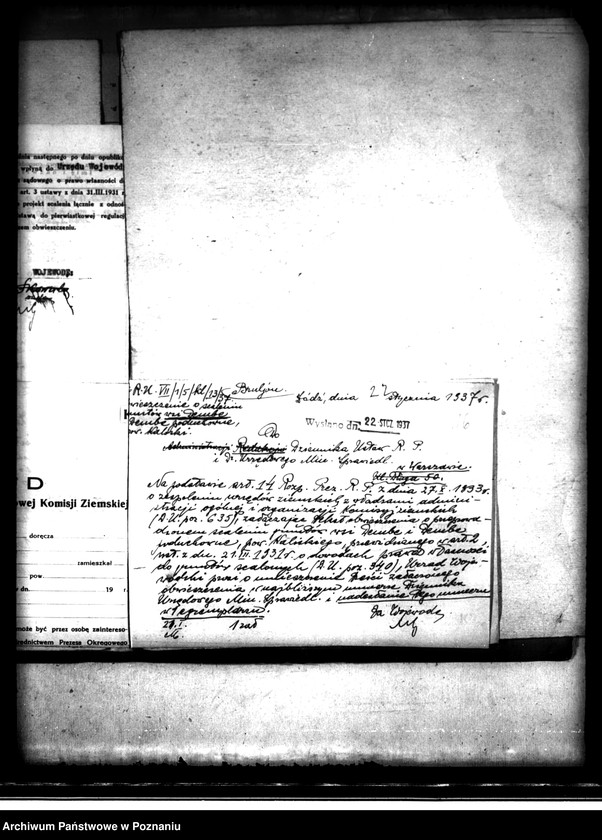 dnia następnego po dniu opubliko
wpłyną do Urzędu Wojewód
sądowego o prawo własności d
art. 3 ustawy z dnia 31.III.1931 r
projekt scalenia łącznie z odnoś
stawą do pierwiastkowej regulacj
em obwieszczeniu.
WOJEWODA:
D
owej Komisji Ziemskiej
doręcza
zamieszkał
pow.
dn. 19 r.
może być przez osobę zaintereso-
rednictwem Prezesa Okręgowego
R.U. VII/1/5/Kl/13/37 Bruljon.
Łódź, dnia 22 stycznia 1937 r.
wieszczenie o scaleniu
gruntów wsi Dembe
Dembe poduchowne,
ow. Kaliski.
Wysłano dn. 22 STYCZ. 1937
Do
Administracji Redakcji Dziennika Ustaw R. P.
i Dz. Urzędowego Min. Sprawiedl.
w Warszawie.
Ul. Długa 50.
Na podstawie art. 14 Rozp. Prez. R. P. z dnia 27.X. 1933 r.
o zespoleniu urzędów ziemskich z władzami admini-
stracji ogólnej i organizacji komisyj ziemskich
(D.U. poz. 635), załączając tekst obwieszczenia o przeprowa-
dzonem scaleniu gruntów wsi Dembe i Dembe
poduchowne, pow. Kaliskiego, przewidzianego w art. 2,
ust. z dn. 21.III. 1931 r. o dowodach prawa własności
do gruntów scalonych (D.U. poz. 340), Urząd Woje-
wódzki prosi o umieszczenie treści załączonego
obwieszczenia w najbliższym numerze Dziennika
Urzędowego Min. Sprawiedl. i nadesłanie tego numeru
w 1 egzemplarzu.
21.I. 1 zał
Za Wojewodę
Archiwum Państwowe w Poznaniu